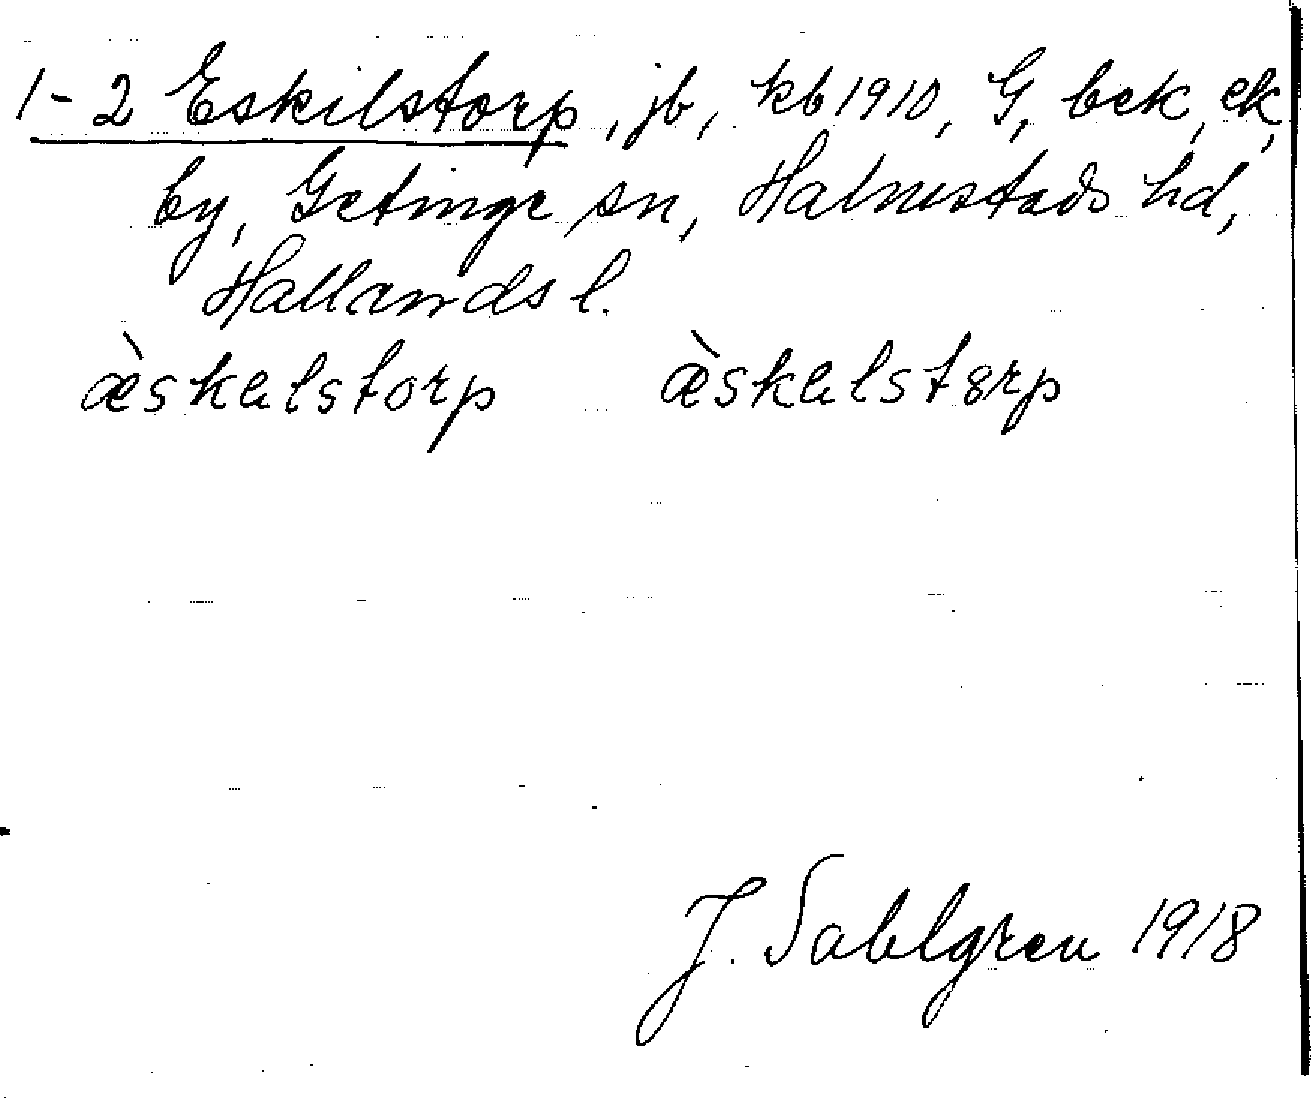 1-2 Eskilstorp, jb, kb 1910, G, bek, ek,
by, Getinge sn, Halmstads hd,
Hallands l.
æ̀skalstorp æ̀skalstɞrp
J. Sahlgren 1918